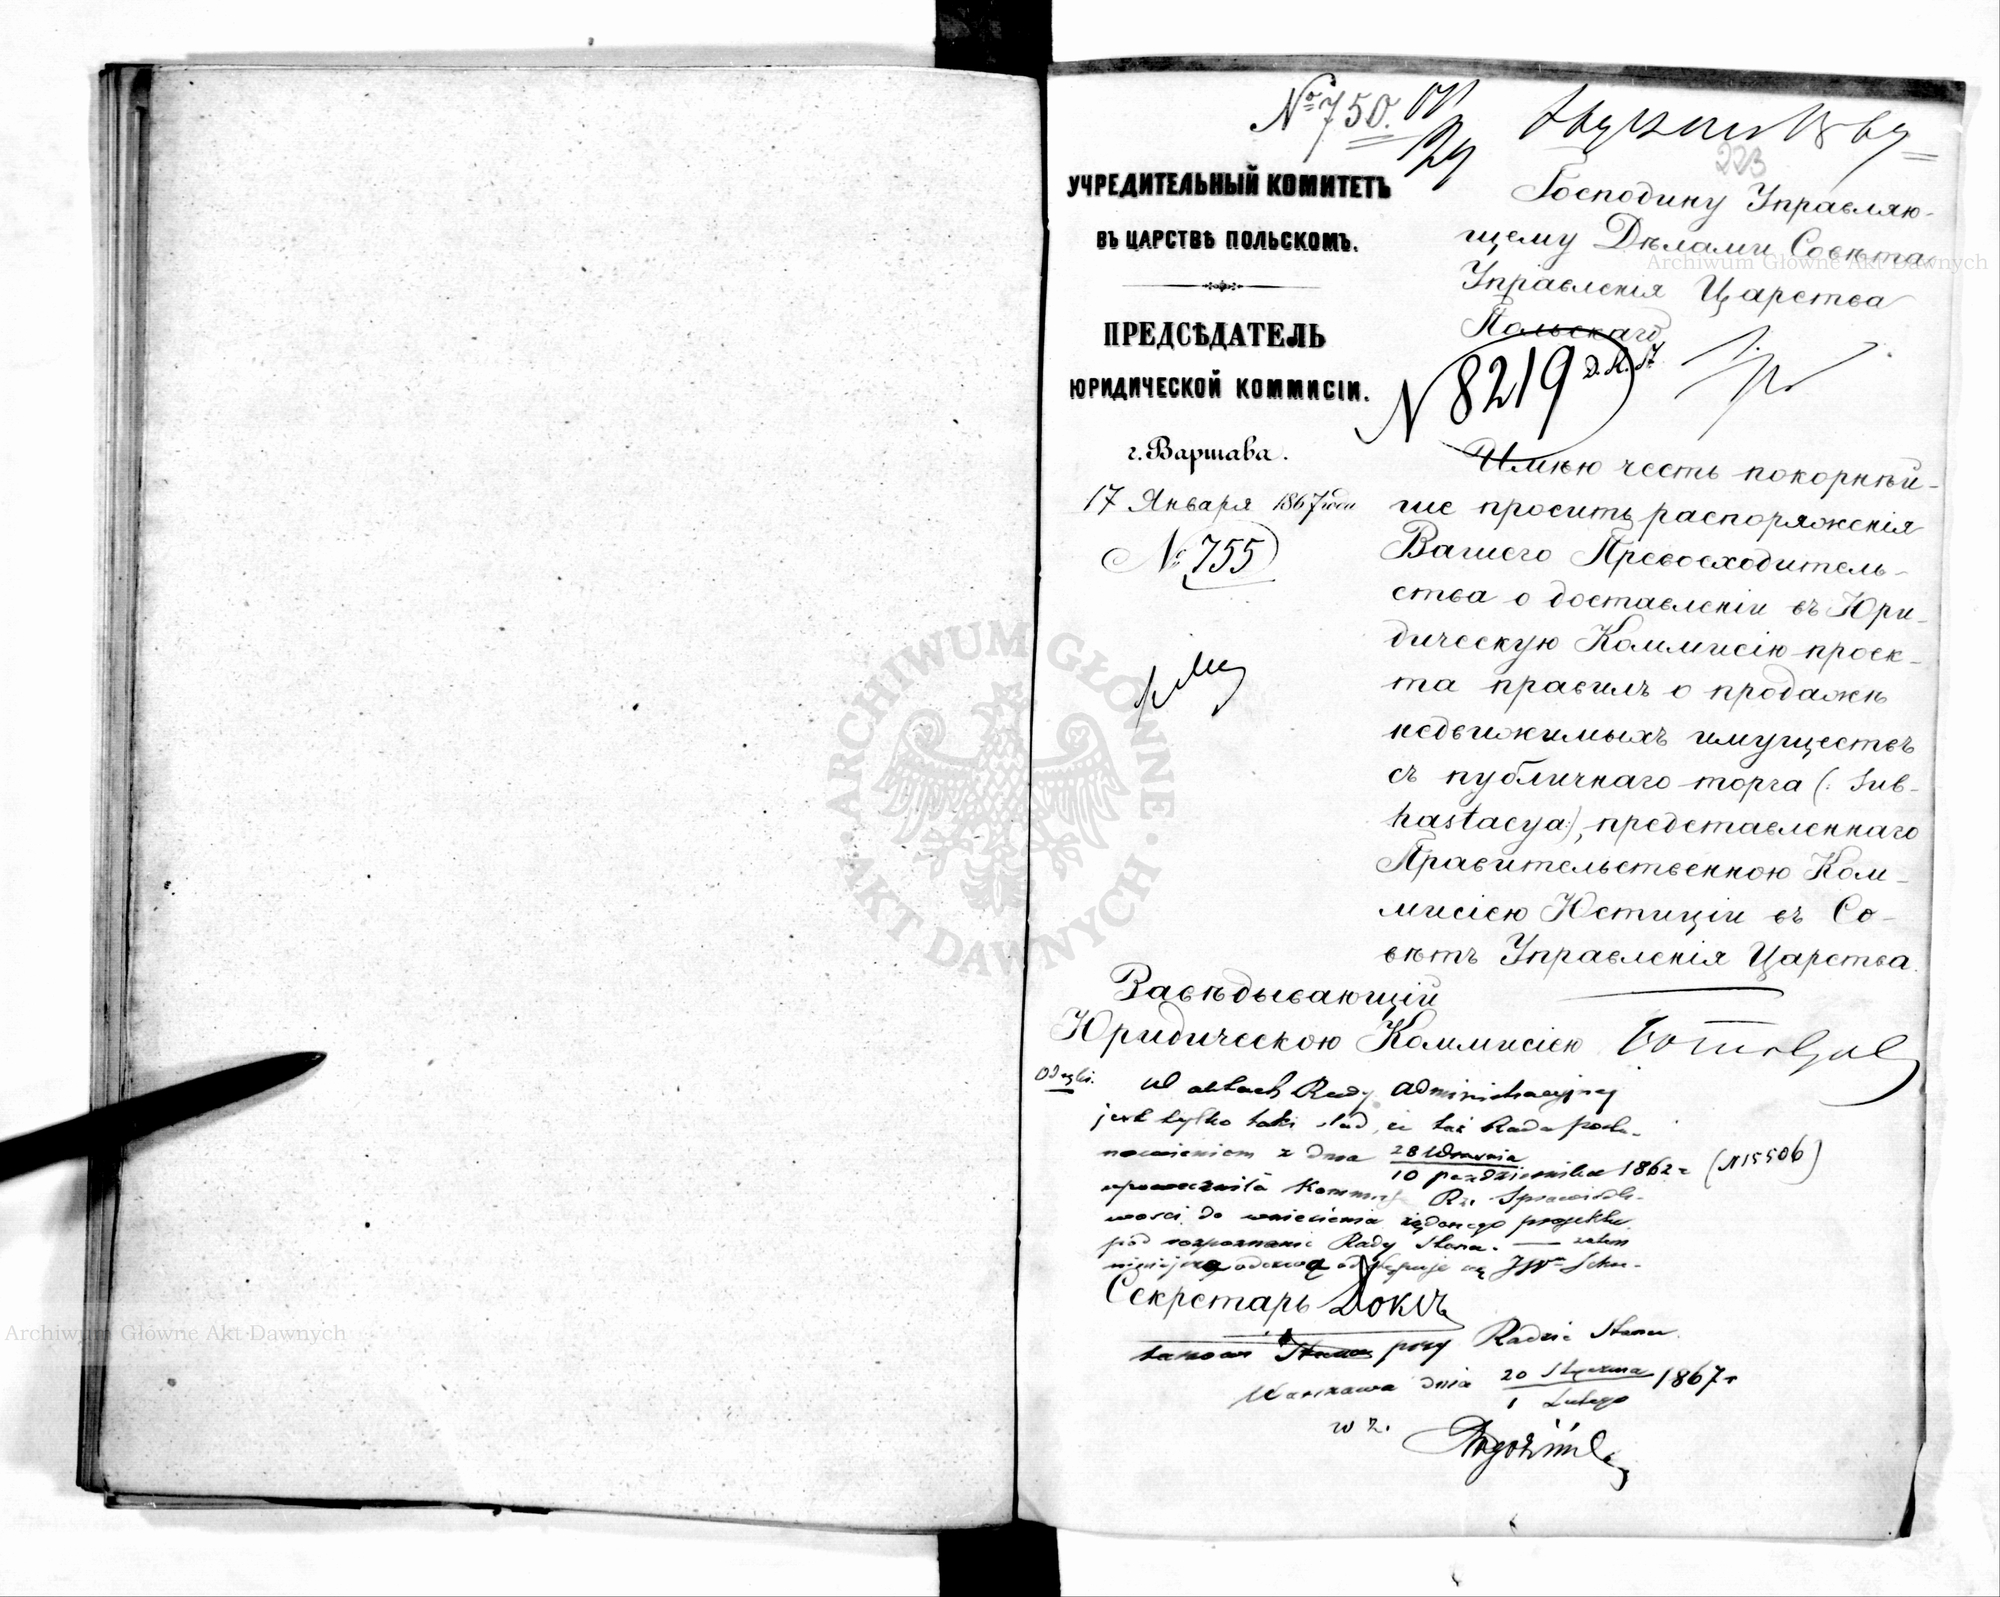 № 750.
223
УЧРЕДИТЕЛЬНЫЙ КОМИТЕТЪ
ВЪ ЦАРСТВѢ ПОЛЬСКОМЪ.
ПРЕДСѢДАТЕЛЬ
ЮРИДИЧЕСКОЙ КОММИСІИ.
г. Варшава.
17 Января 1867 года
№ 755
Господину Управляю-
щему Дѣлами Совѣта
Управленія Царства
Польскаго
N 8219
Имѣю честь покорнѣй-
ше просить распоряженія
Вашего Превосходитель-
ства о доставленіи въ Юри-
дическую Коммисію проек-
та правилъ о продажѣ
недвижимыхъ имуществъ
съ публичнаго торга (: Sub-
hastacya:), представленнаго
Правительственною Ком-
мисіею Юстиціи въ Со-
вѣтъ Управленія Царства.
Завѣдывающій
Юридическою Коммисіею
W aktach Rady Administracyjnej
jest tylko taki ślad, że taż Rada posta-
nowieniem z dnia 28 Września
10 października 1862 r (N 15506)
upoważniła Kommis. Rz. Sprawiedli-
wości do wniesienia żądanego projektu
pod rozpoznanie Rady Stanu. — zatem
niniejszą odezwę odstępuje się JW Sekre-
Секретарь
tarzowi Stanu przy Radzie Stanu.
Warszawa dnia 20 Stycznia
1 Lutego 1867 r
w z.
Archiwum Główne Akt Dawnych
ARCHIWUM GŁÓWNE
AKT DAWNYCH
Archiwum Główne Akt Dawnych